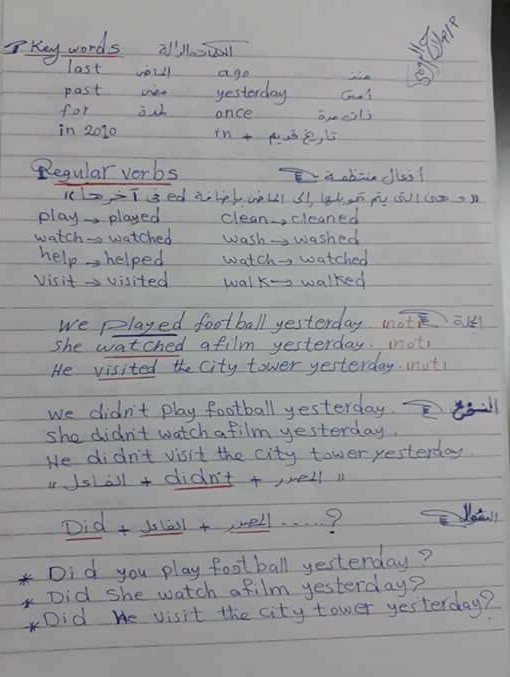 Key words الكلمات الدالة
last الماضى ago منذ
past مضى yesterday أمس
for لمدة once ذات مرة
in 2010 in + تاريخ قديم
Regular verbs أفعال منتظمة
"وهى التى يتم تحويلها إلى الماضى بإضافة ed فى آخرها"
play → played clean → cleaned
watch → watched wash → washed
help → helped watch → watched
visit → visited walk → walked
We played football yesterday. (not)
she watched a film yesterday. (not)
He visited the city tower yesterday. (not)
we didn't play football yesterday. النفى
she didn't watch a film yesterday.
He didn't visit the city tower yesterday
"الفاعل + didn't + المصدر"
Did + الفاعل + المصدر .....? السؤال
* Did you play football yesterday?
* Did she watch a film yesterday?
* Did He visit the city tower yesterday?